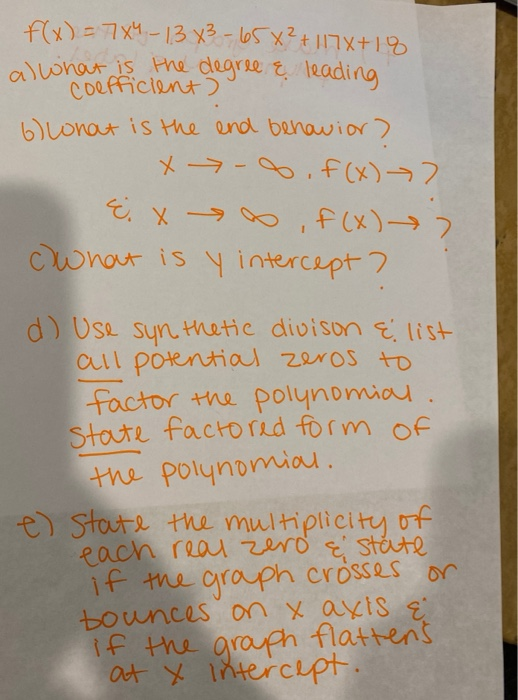 f(x) = 7x⁴ - 13x³ - 65x² + 117x + 18
a) What is the degree & leading
coefficient?
b) What is the end behavior?
x → -∞, f(x) → ?
& x → ∞, f(x) → ?
c) What is y intercept?
d) Use synthetic divison & list
all potential zeros to
factor the polynomial.
State factored form of
the polynomial.
e) State the multiplicity of
each real zero & state
if the graph crosses or
bounces on x axis &
if the graph flattens
at x intercept.